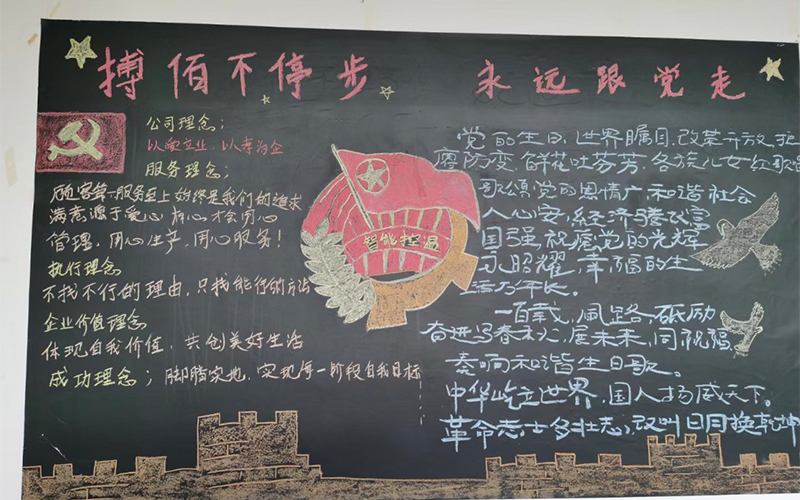 搏佰不停步 永远跟党走
公司理念；
以爱立业，以孝治企
服务理念；
顾客第一服务至上始终是我们的追求
满意源于爱心，用心才会用心
管理，用心生产，用心服务！
执行理念
不找不行的理由，只找能行的方法
企业价值理念
体现自我价值，共创美好生活
成功理念；脚踏实地，实现每一阶段自我目标
智能控温
党的生日，世界瞩目，改革开放，拒
腐防变，鲜花吐芬芳，各族儿女红歌唱
歌颂党的恩情广，和谐社会
人心安，经济腾飞富
国强，祝愿党的光辉
永照耀，幸福的生
活万年长。
一百载，风路，砥励
奋进马春秋，展未来，同祝福
奏响和谐生日歌。
中华屹立世界，国人扬威天下。
革命志士多壮志，敢叫日月换乾坤